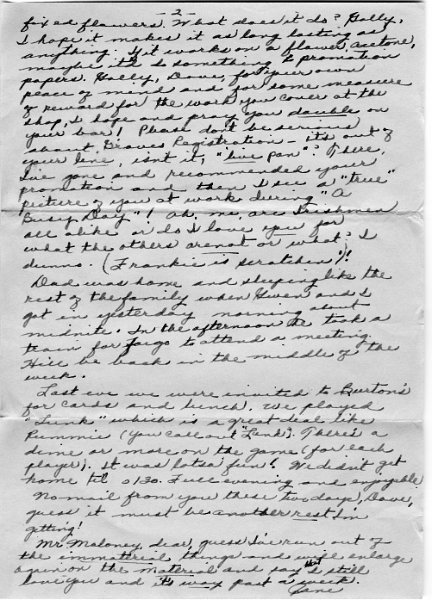 - 2 -
fixes flowers. What does it do? Golly,
I hope it makes it as long lasting as
anything. If it works on a flower, acetone,
maybe it'll do something to promotion
papers. Golly, Dave, for your own
peace of mind and for some measure
of reward for the work you cover at the
shop, I hope and pray you double on
your bar! Please don't be serious
about Graves Registration - it's out of
your line, isn't it, "live pan"? There,
I've gone and recommended your
promotion and then I see a "true"
picture of you at work during "A
Busy Day"! Oh, me, are Irishmen
all alike or do I love you for
what the others are not or what? I
dunno. (Frankie is scratchen'!)
Dad was home and sleeping like the
rest of the family when Gwen and I
got in yesterday morning about
midnite. In the afternoon he took a
train for Fargo to attend a meeting.
He'll be back in the middle of the
week.
Last eve we were invited to Burton's
for cards and lunch. We played
"Tunk" which is a great deal like
Rummie (you call out "Tunk"). There's a
dime or more on the game (for each
player). It was lotsa fun! We didn't get
home til 0130. Full evening and enjoyable
No mail from you these two days, Dave,
guess it must be another rest I'm
getting!
Mr. Maloney, dear, guess I've run out of
the immaterial things and will enlarge
again on the material and say I still
love you and it's way past a week.
Jane